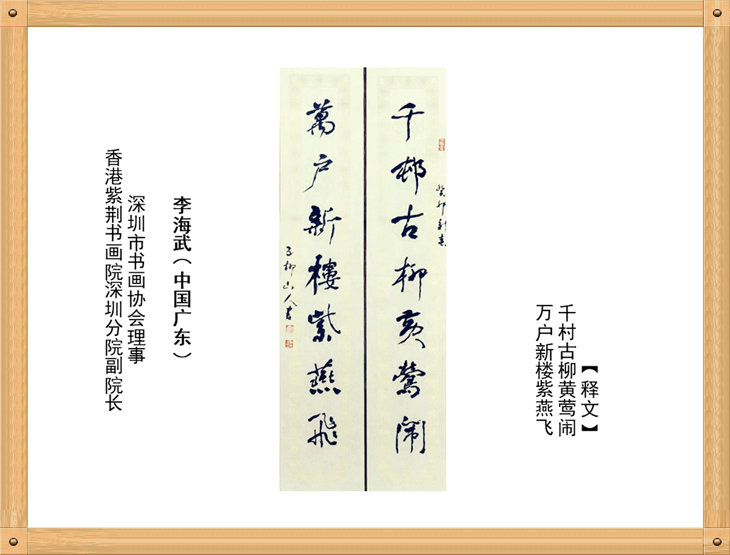 【释文】
千村古柳黄莺闹
万户新楼紫燕飞
千邨古柳黄莺闹
癸卯新春
萬户新樓紫燕飛
山人书
李海武（中国广东）
深圳市书画协会理事
香港紫荆书画院深圳分院副院长